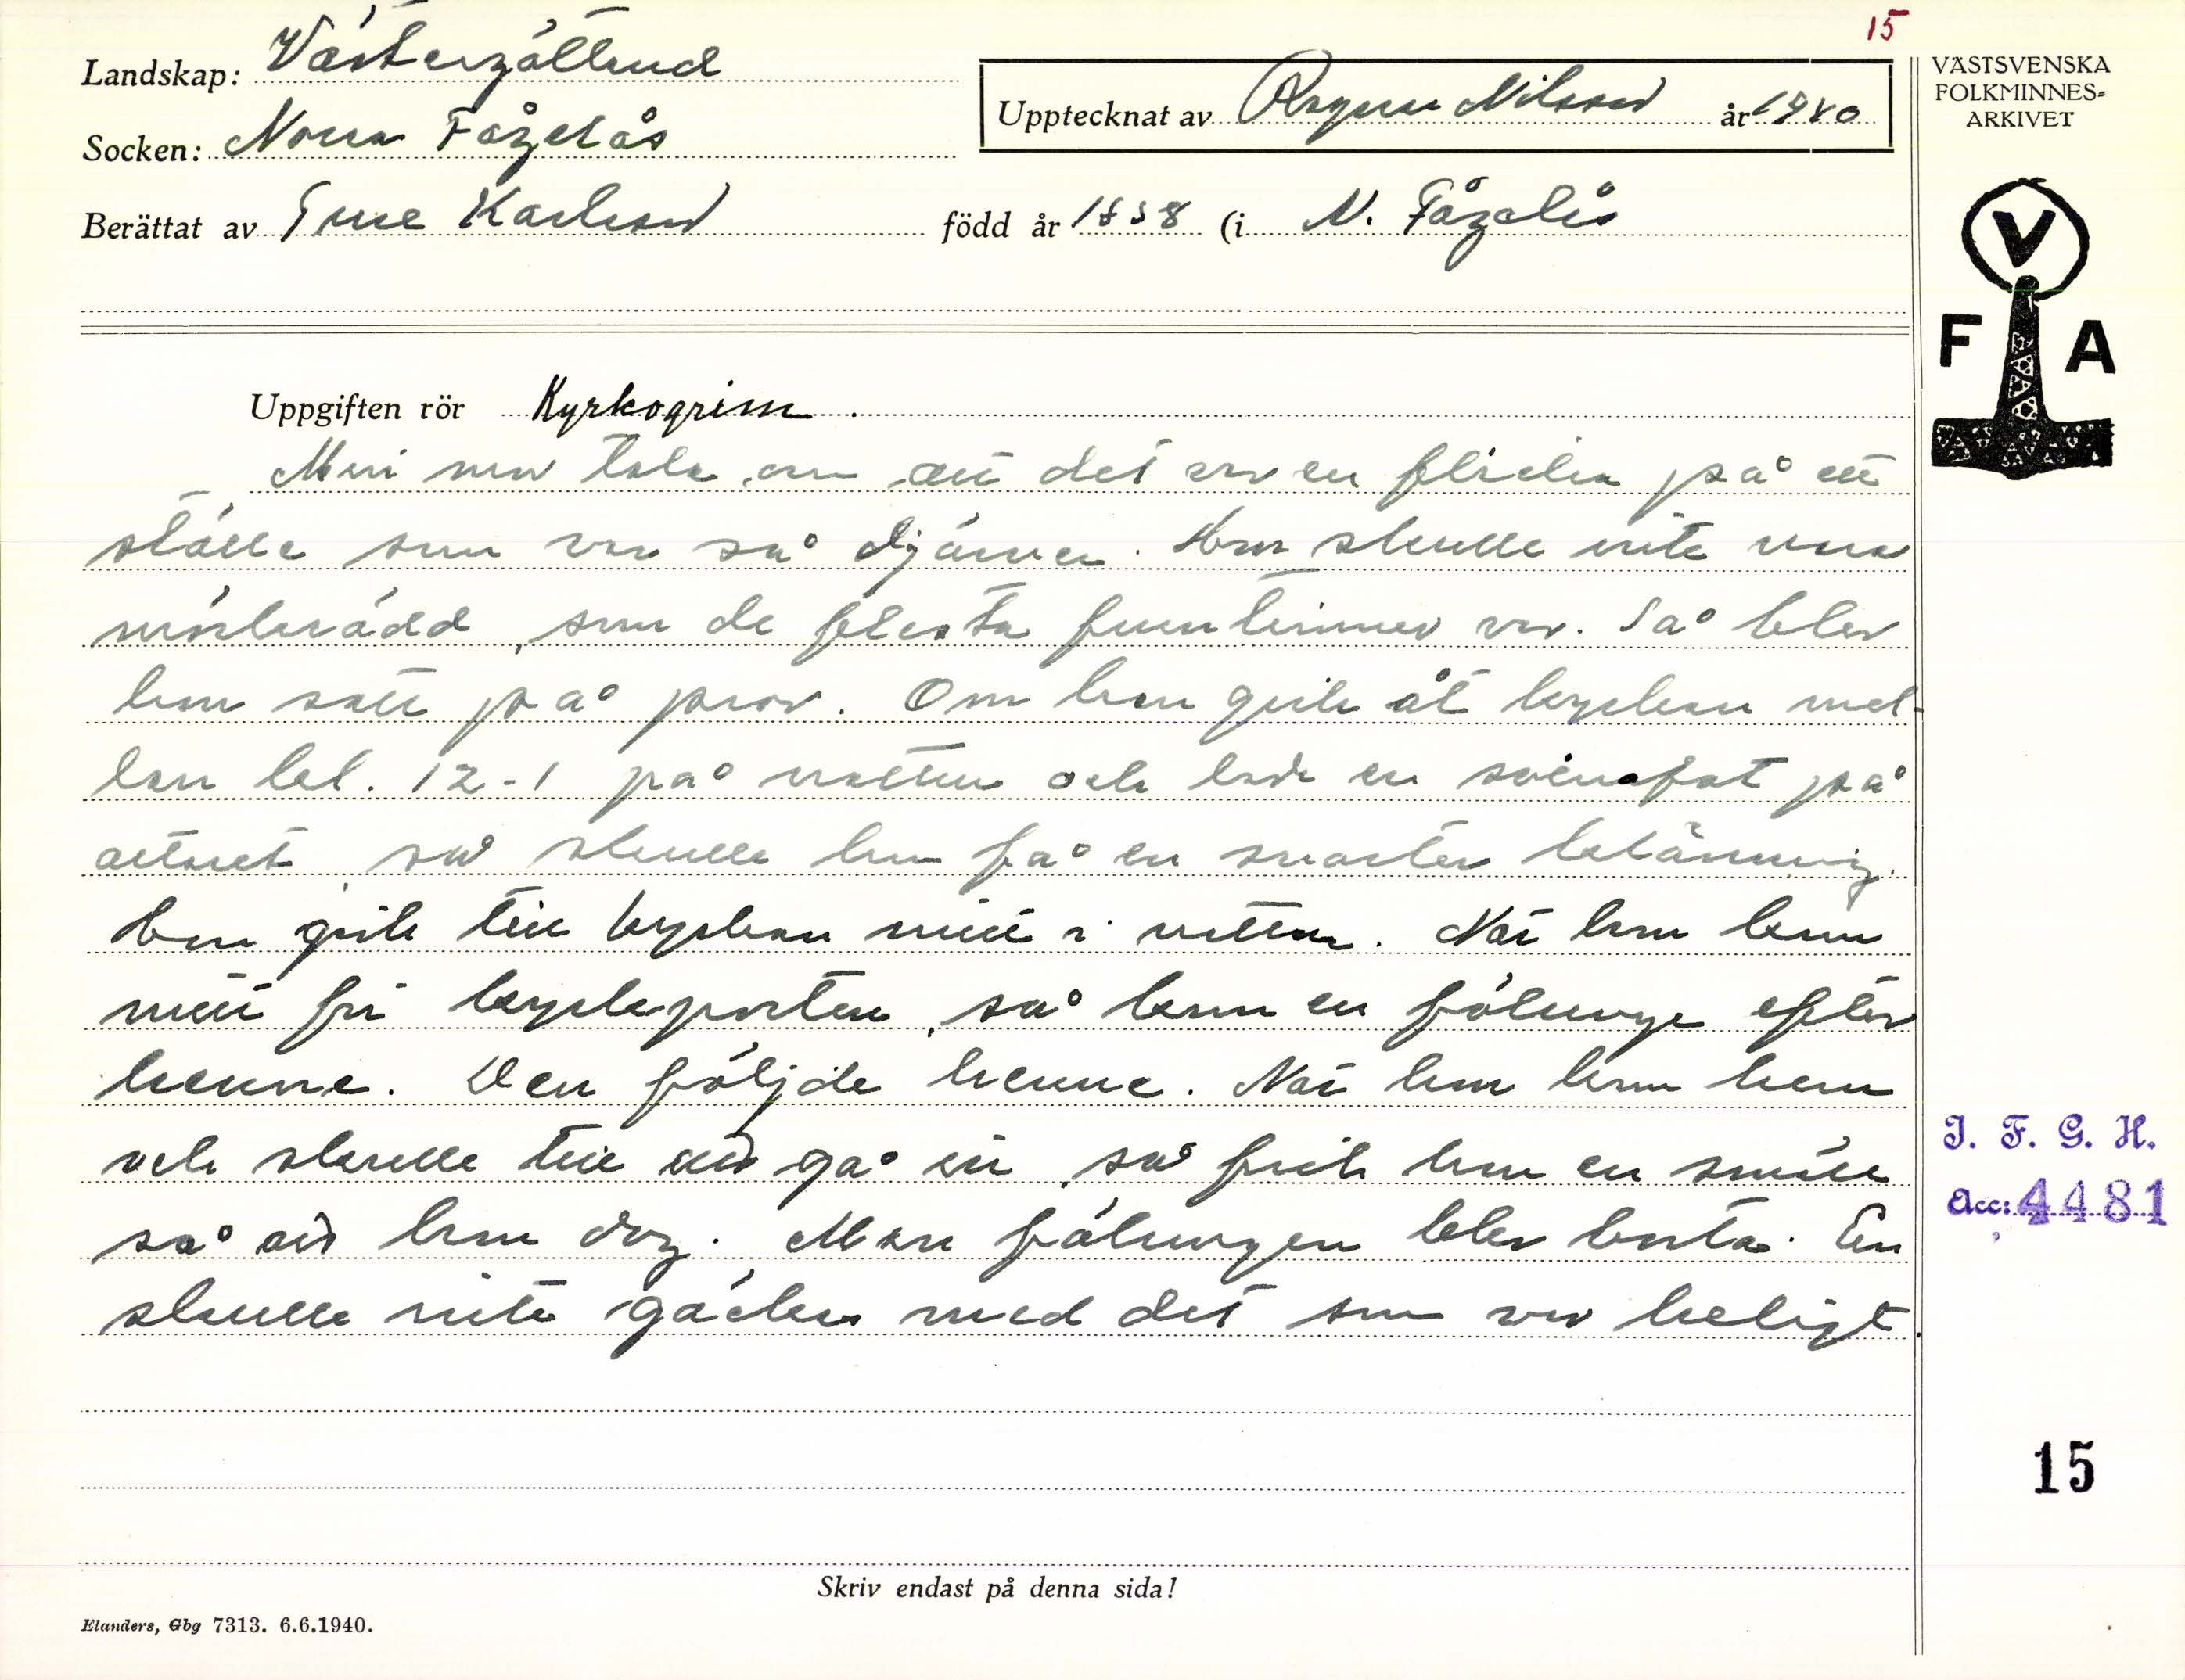 15
Landskap: Västergötland
Socken: Norra Fågelås
Upptecknat av Ragnar Nilsson år 1940
Berättat av Ture Karlsson född år 1858 (i N. Fågelås
VÄSTSVENSKA
FOLKMINNES-
ARKIVET
V
F A
Uppgiften rör Kyrkogrim.
Min mor tala om att det var en flicka på ett
ställe som var så djärver. Hon skulle inte vara
mörkrädd, som de flesta fruntimmer var. Så blev
hon satt på prov. Om hon gick åt kyrkan mel-
lan kl. 12-1 på natten och lade en svinafot på
altaret så skulle hon få en snarlter belänning.
Hon gick till kyrkan mitt i natten. När hon kom
mitt för kyrkporten, så kom en fölunge efter
henne. Den följde henne. När hon kom hem
och skulle till att gå in, så fick hon en smäll
så att hon dog. Men fölungen blev borta. En
skulle inte gäcka med det som var heligt.
I. F. G. H.
Acc: 4481
15
Skriv endast på denna sida!
Elanders, Gbg 7313. 6.6.1940.